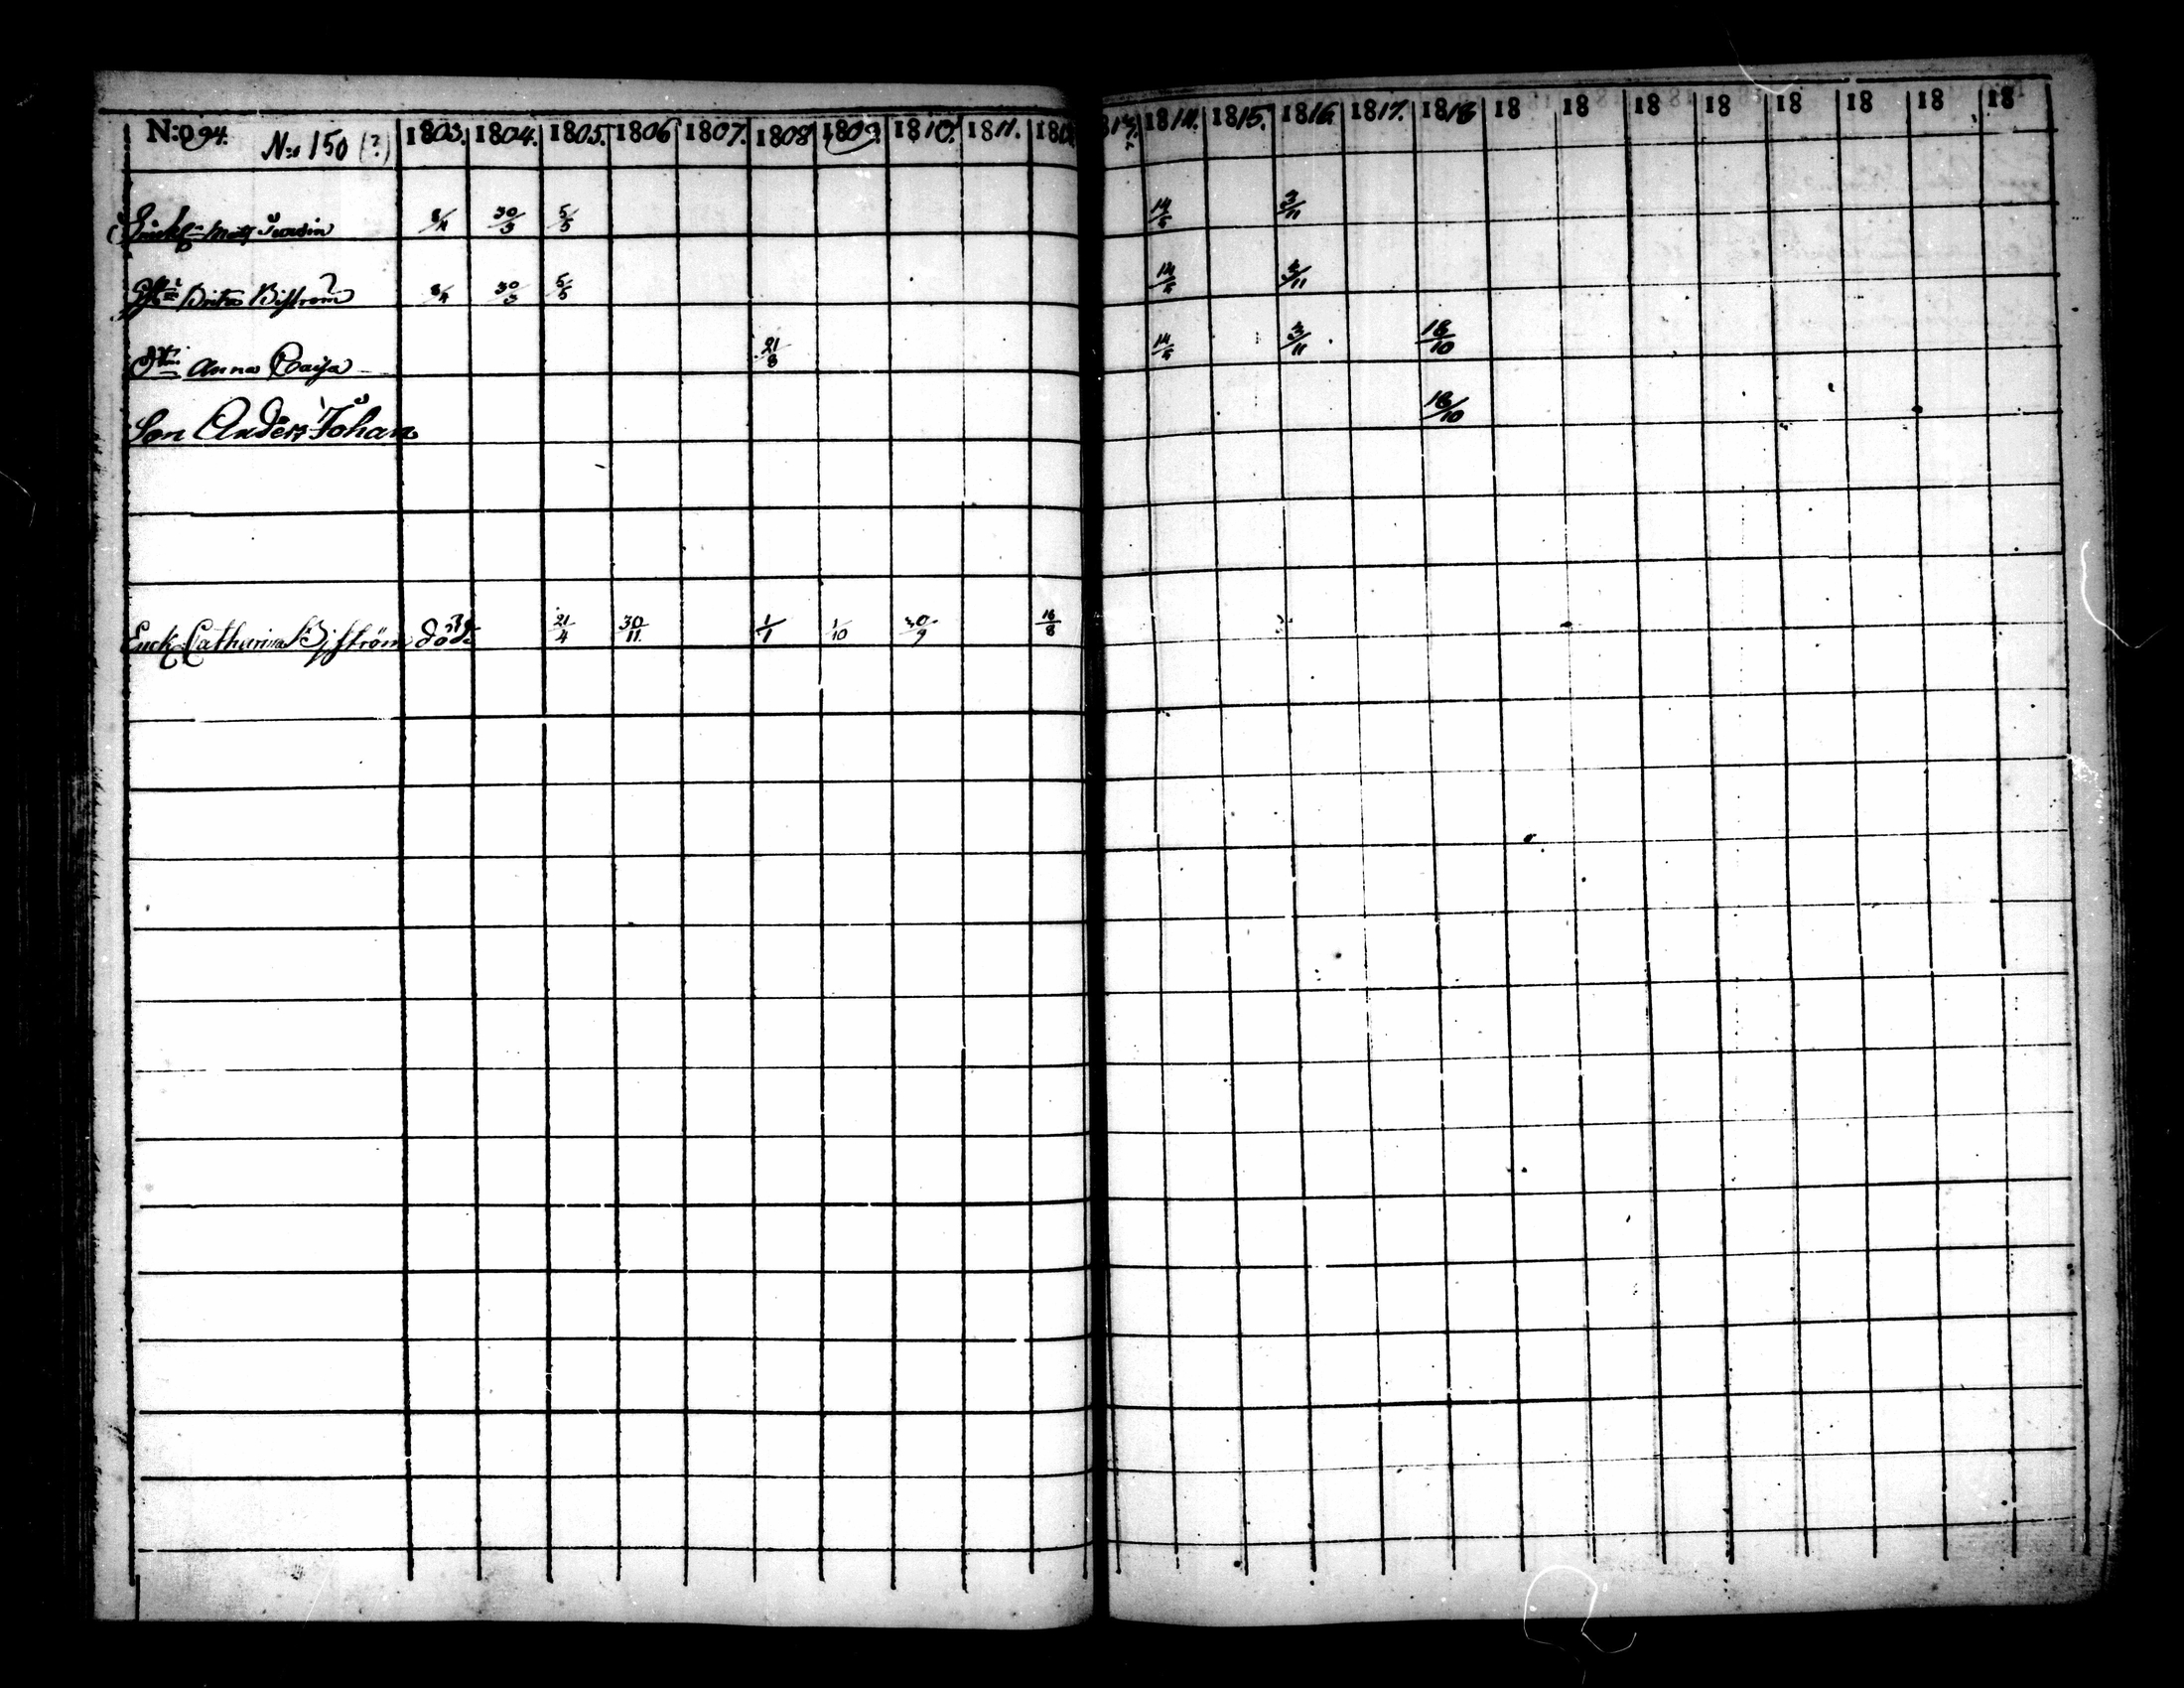 N:o 94. N:o 150 (?) 1803. 1804. 1805. 1806 1807. 1808 1809. 1810. 1811. 1812 1813. 1814. 1815. 1816. 1817. 1818 18 18 18 18 18 18 18 18
Matts 8/4 30/3 5/5 14/5 3/11
Brita Biström 8/4 30/3 5/5 14/5 3/11
Anna Caisa 21/8 14/5 3/11 18/10
Son Anders Johan 18/10
Enck Catharina Biström död 21/4 30/11 1/1 1/10 30/9 16/8